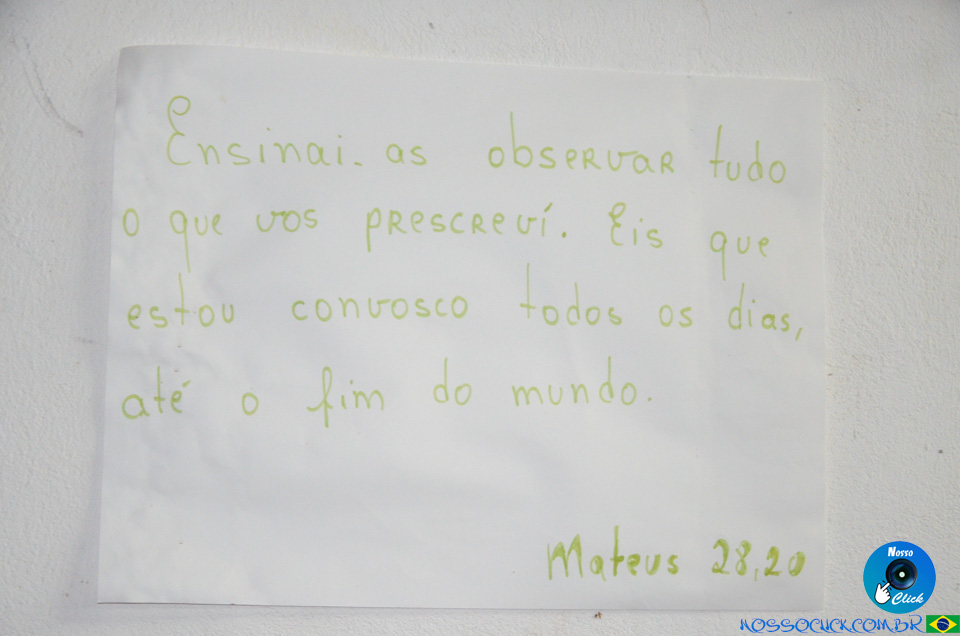 Ensinai-as observar tudo
o que vos prescreví. Eis que
estou convosco todos os dias,
até o fim do mundo.
Mateus 28,20
Nosso
Click
NOSSOCLICK.COM.BR